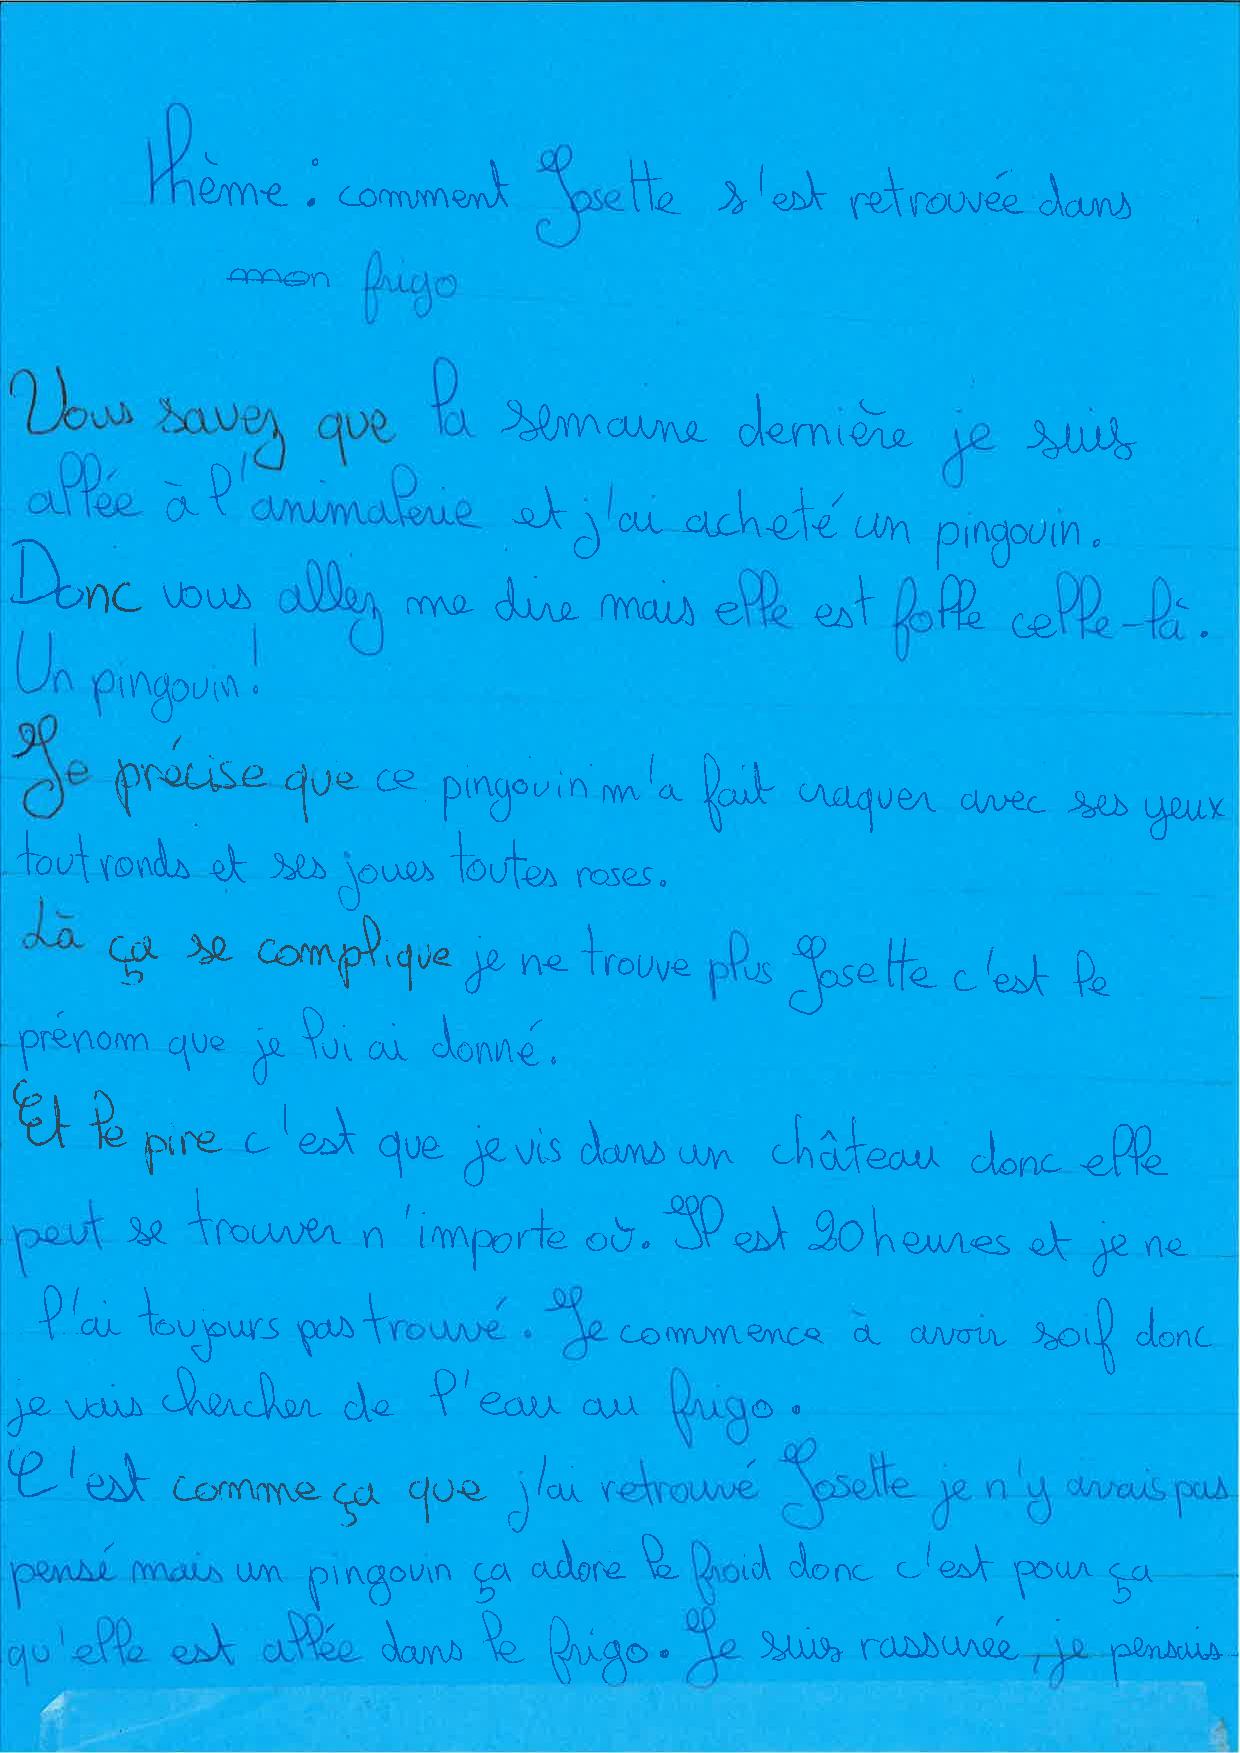 Thème : comment Josette s'est retrouvée dans
mon frigo
Vous savez que la semaine dernière je suis
allée à l'animalerie et j'ai acheté un pingouin.
Donc vous allez me dire mais elle est folle celle-là.
Un pingouin !
Je précise que ce pingouin m'a fait craquer avec ses yeux
tout ronds et ses joues toutes roses.
Là ça se complique je ne trouve plus Josette c'est le
prénom que je lui ai donné.
Et le pire c'est que je vis dans un château donc elle
peut se trouver n'importe où. Il est 20 heures et je ne
l'ai toujours pas trouvé. Je commence à avoir soif donc
je vais chercher de l'eau au frigo.
C'est comme ça que j'ai retrouvé Josette je n'y avais pas
pensé mais un pingouin ça adore le froid donc c'est pour ça
qu'elle est allée dans le frigo. Je suis rassurée, je pensais